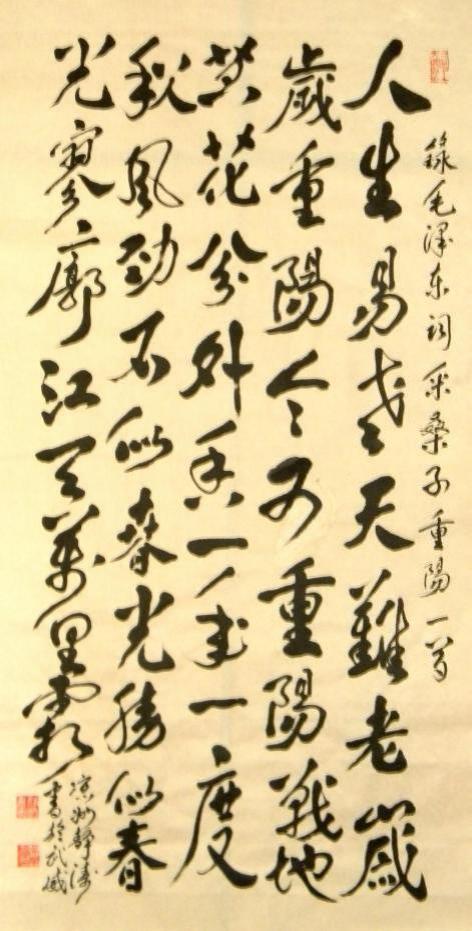 錄毛澤东词采桑子重陽一首
人生易老天難老歲
歲重陽今又重陽戰地
黄花分外香一年一度
秋风勁不似春光勝似春
光寥廓江天萬里霜
凉州靜涛
書於武威